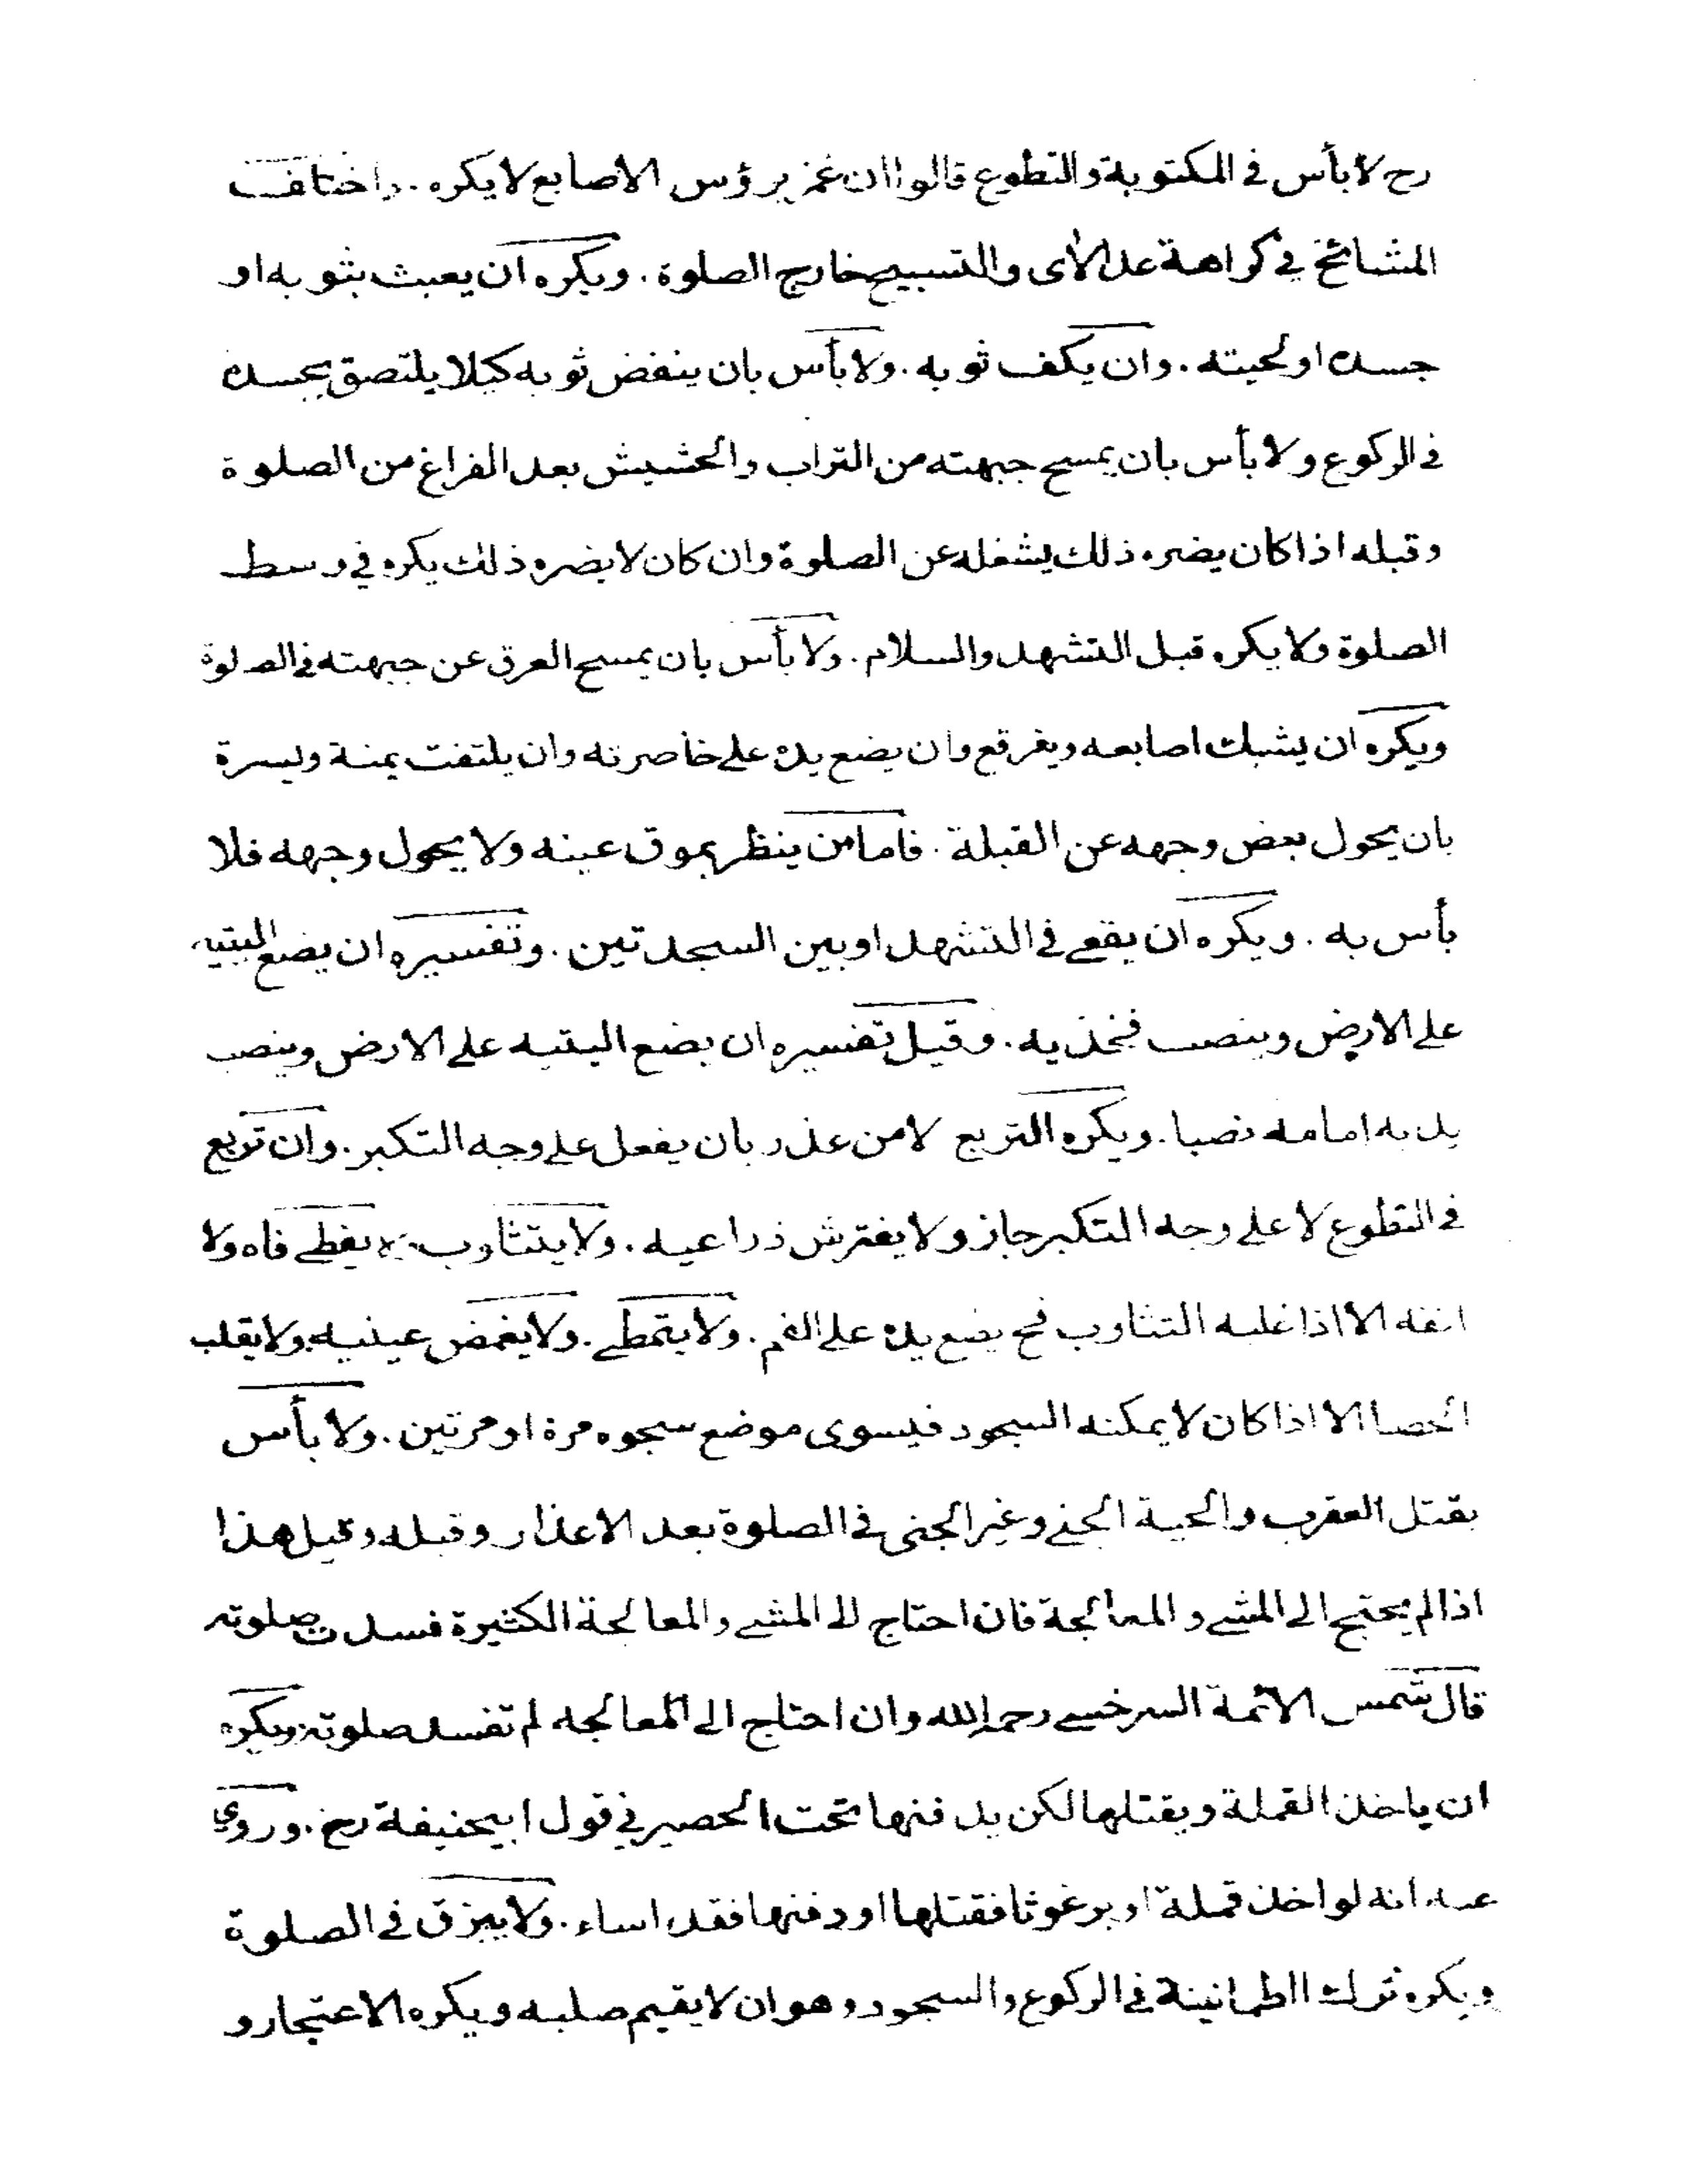 رح لا بأس في المكتوبة والتطوع قالوا ان غمز برؤس الاصابع لا يكره . واختلف
المشائخ في كراهة عد الآى والتسبيح خارج الصلوة . ويكره ان يعبث بثوبه او
جسده او لحيته . وان يكف ثوبه . ولا بأس بان ينفض ثوبه كيلا يلتصق بجسده
في الركوع ولا بأس بان يمسح جبهته من التراب والحشيش بعد الفراغ من الصلوة
وقبله اذا كان يضره ذلك يشغله عن الصلوة وان كان لا يضره ذلك يكره في وسط
الصلوة ولا يكره قبل التشهد والسلام . ولا بأس بان يمسح العرق عن جبهته في الصلوة
ويكره ان يشبك اصابعه ويفرقع وان يضع يده على خاصرته وان يلتفت يمنة ويسرة
بان يحول بعض وجهه عن القبلة . فاما من ينظر بموق عينه ولا يحول وجهه فلا
بأس به . ويكره ان يقعى في التشهد او بين السجدتين . وتفسيره ان يضع اليتيه
على الارض وينصب فخذيه . وقيل تفسيره ان يضع اليتيه على الارض وينصب
يديه امامه نصبا . ويكره التربع لا من عذر بان يفعل على وجه التكبر . وان تربع
في التطوع لا على وجه التكبر جاز ولا يفترش ذراعيه . ولا يتثاوب ولا يغطى فاه ولا
انفه الا اذا غلبه التثاوب فح يضع يده على الفم . ولا يتمطى . ولا يغمض عينيه ولا يقلب
الحصا الا اذا كان لا يمكنه السجود فيسوى موضع سجوه مرة او مرتين . ولا بأس
بقتل العقرب والحية الجنى وغير الجنى في الصلوة بعد الاعذار وقبله وقيل هذا
اذا لم يحتج الى المشى والمعالجة فان احتاج الى المشى والمعالجة الكثيرة فسدت صلوته
قال شمس الائمة السرخسى رحمه الله وان احتاج الى المعالجه لم تفسد صلوته ويكره
ان ياخذ القملة ويقتلها لكن يدفنها تحت الحصير في قول ابيحنيفة رح . وروى
عنه انه لو اخذ قملة او برغوثا فقتلها او دفنها فقد اساء . ولا يبزق في الصلوة
ويكره ترك الطمانينة في الركوع والسجود وهو ان لا يقيم صلبه ويكره الاعتجار و